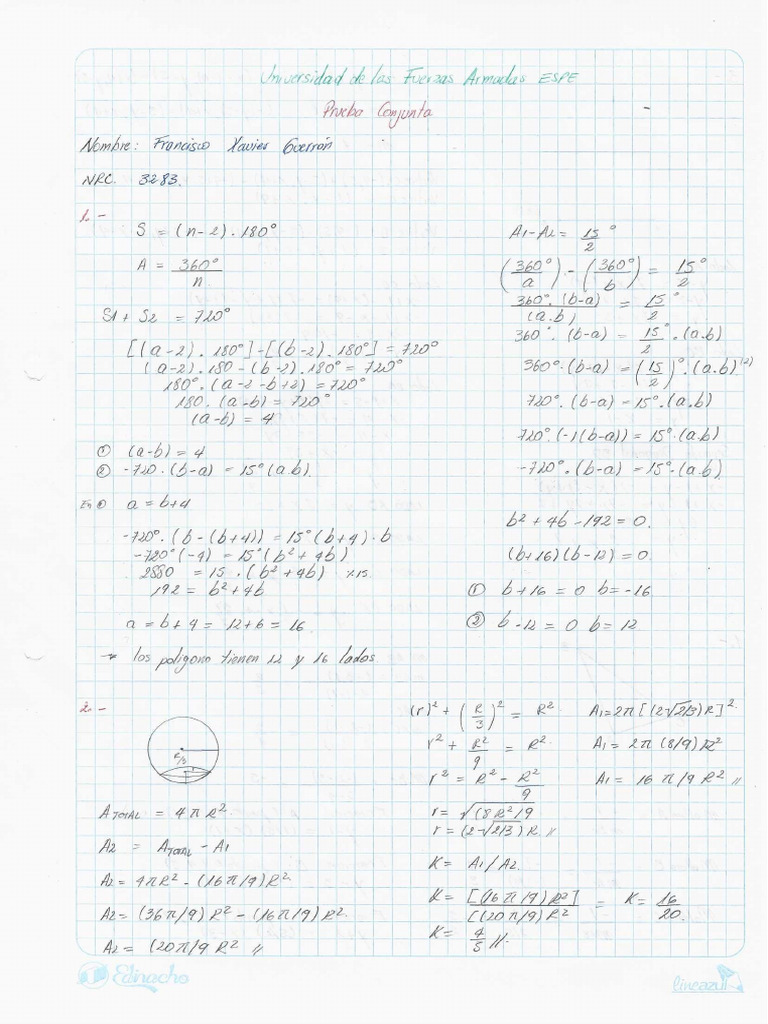 Universidad de las Fuerzas Armadas ESPE
Prueba Conjunta
Nombre: Francisco Xavier Guerrón
NRC. 3283.
1.-
S = (n-2).180°
A = 360°/n
S1 + S2 = 720°
[(a-2).180°]-[(b-2).180°] = 720°
(a-2).180-(b-2).180° = 720°
180°.(a-2-b+2) = 720°
180.(a-b) = 720°
(a-b) = 4
① (a-b) = 4
② -720.(b-a) = 15°(a.b).
En ① a = b+4
-720°.(b-(b+4)) = 15°(b+4).b
-720°(-4) = 15°(b²+4b)
2880 = 15.(b²+4b) %15
192 = b²+4b
a = b+4 = 12+6 = 16
→ los poligono tienen 12 y 16 lados.
A1-A2 = 15°/2
(360°/a)-(360°/b) = 15°/2
360°.(b-a)/(a.b) = 15°/2
360°.(b-a) = 15°/2.(a.b)
360°.(b-a) = (15/2)°.(a.b)⁽²⁾
720°.(b-a) = 15°.(a.b)
720°.(-1(b-a)) = 15°.(a.b)
-720°.(b-a) = 15°.(a.b)
b²+4b-192 = 0.
(b+16)(b-12) = 0.
① b+16 = 0 b = -16
② b-12 = 0 b = 12
2.-
R/3
r
A TOTAL = 4πR²
A2 = A TOTAL - A1
A2 = 4πR² - (16π/9)R²
A2 = (36π/9)R² - (16π/9)R²
A2 = (20π/9 R² //
(r)² + (R/3)² = R²
r² + R²/9 = R²
r² = R² - R²/9
r = √(8R²/9
r = (2-√2/3)R //
K = A1/A2.
K = [(16π/9)R²]/[(20π/9)R² = K = 16/20.
K = 4/5 //.
A1 = 2π[(2√2/3)R]²
A1 = 2π(8/9)R²
A1 = 16π/9R² //
Edinacho
lineazul